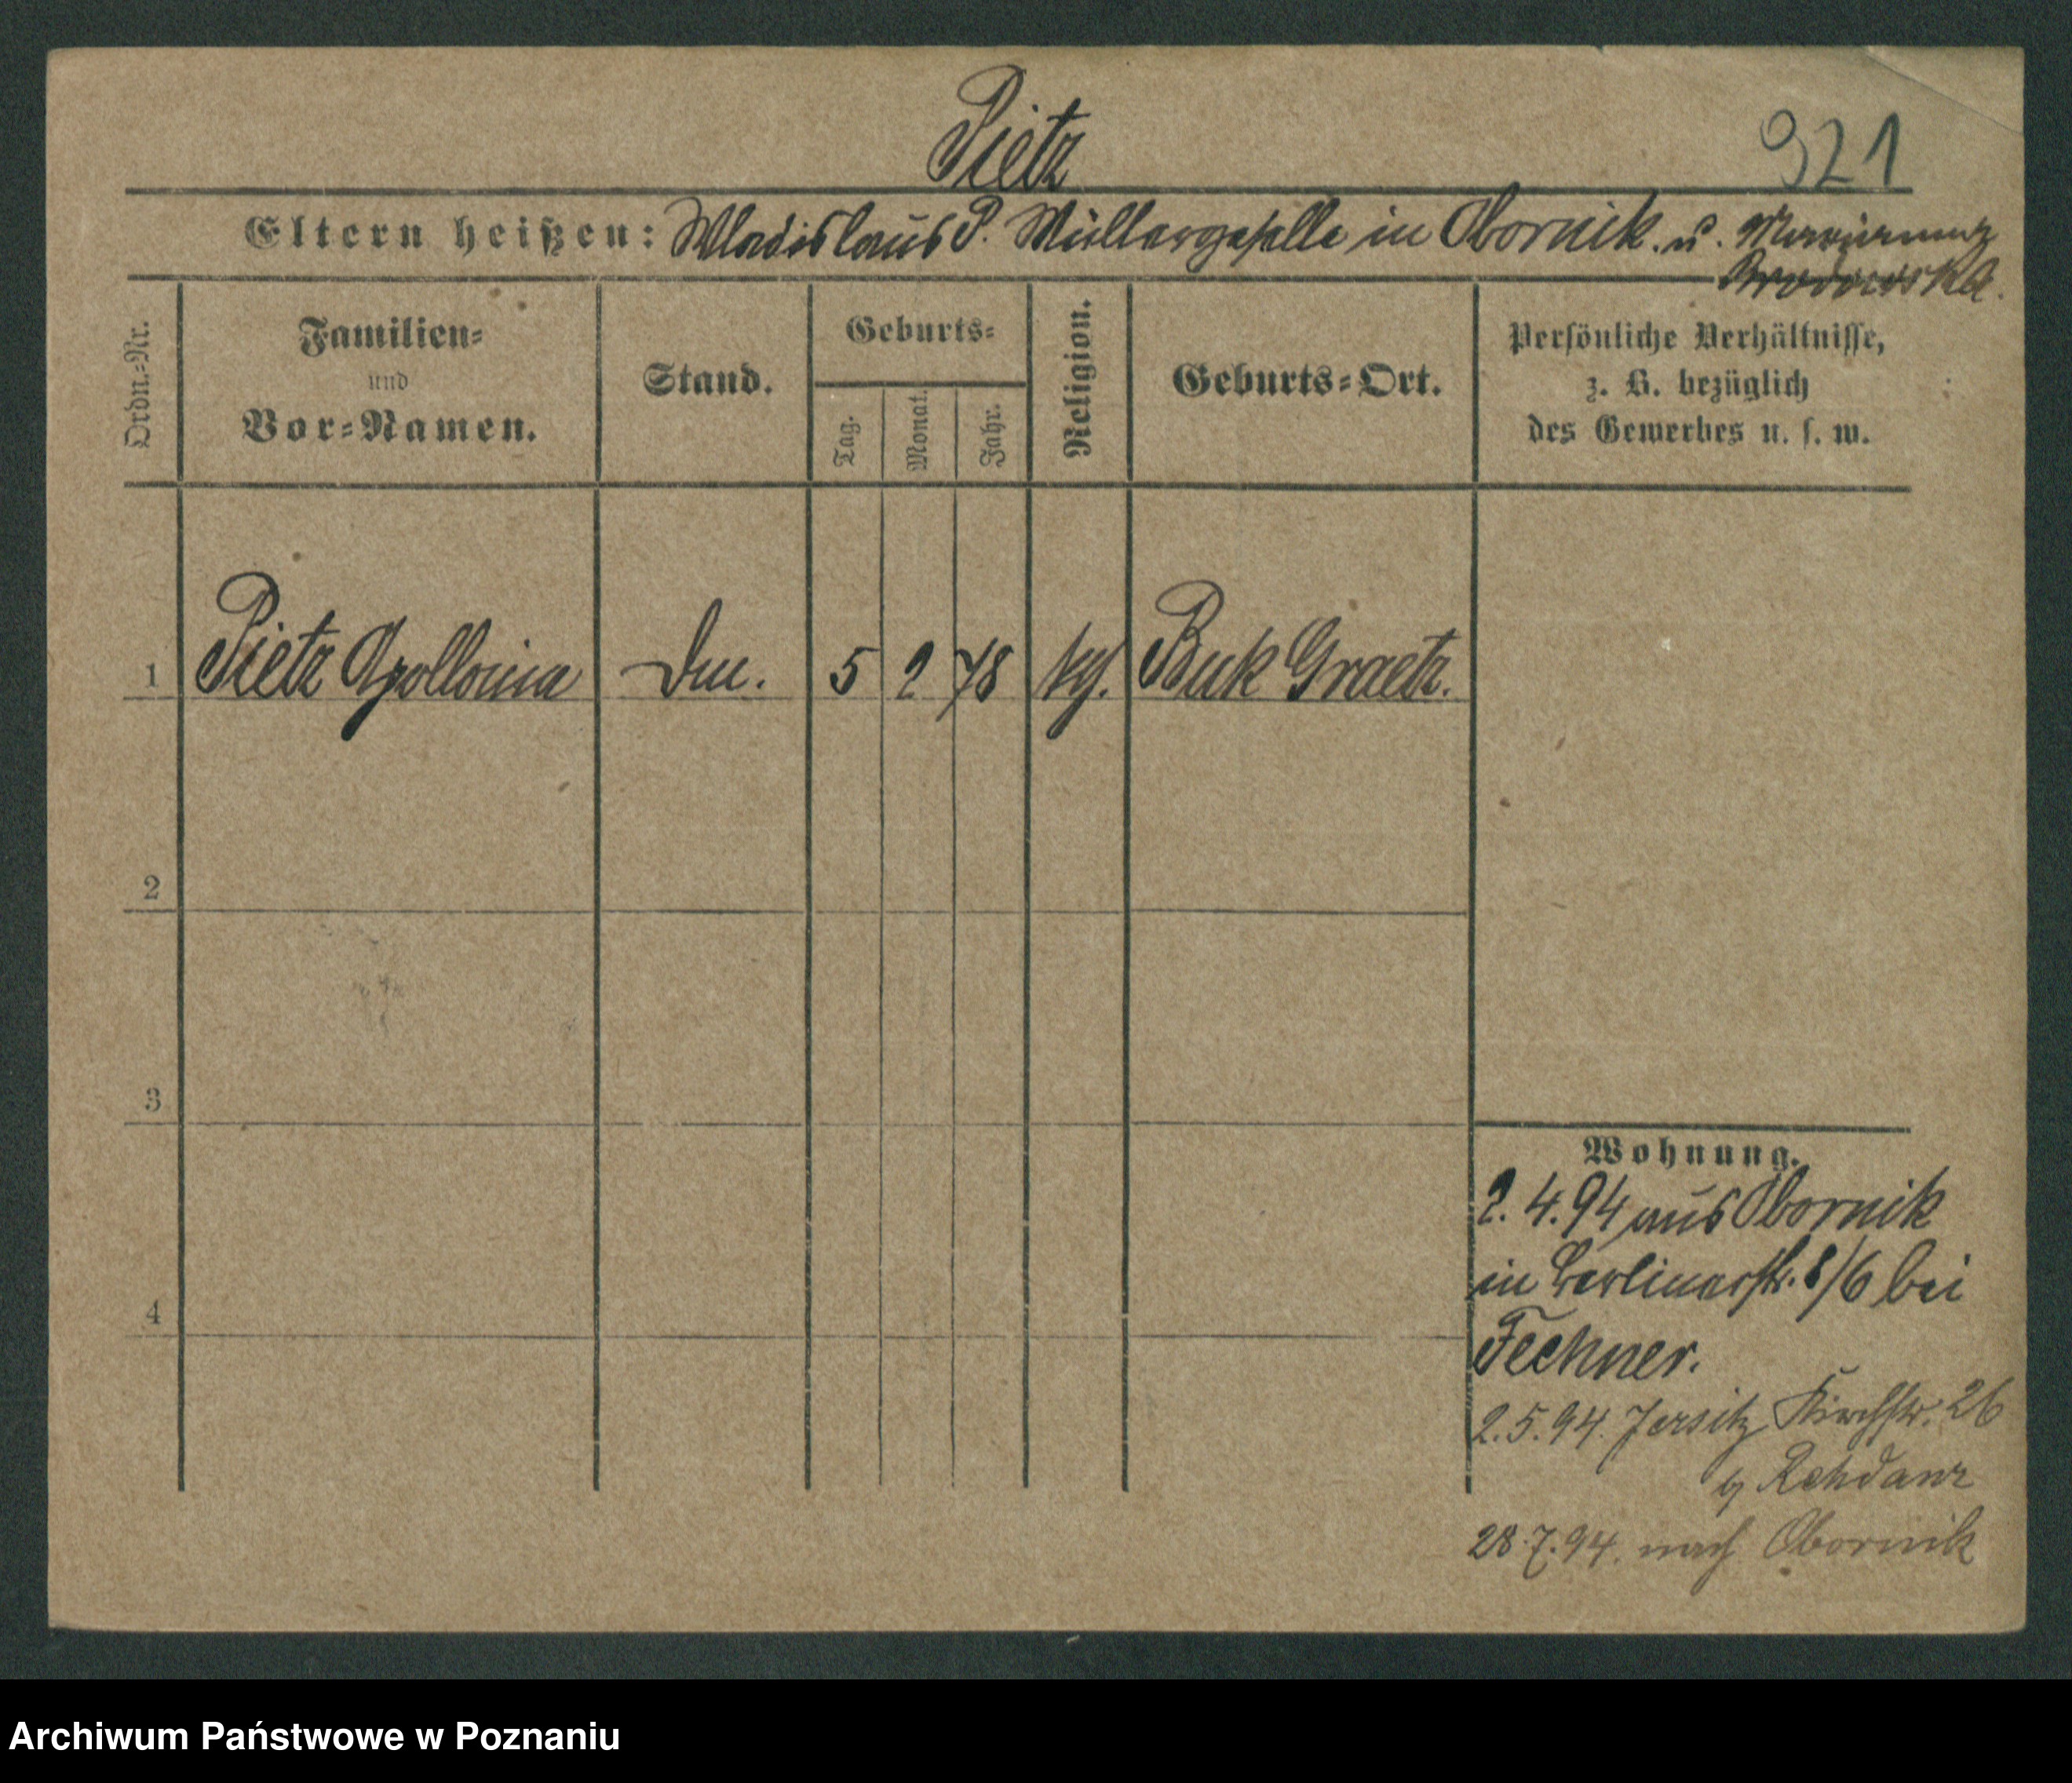 Pietz
921
Eltern heißen: Wladislaus P. Müllergeselle in Obornik. u. Marianna
Brodowska.
Ordn.-Nr.
Familien-
und
Vor-Namen.
Stand.
Geburts-
Tag.
Monat.
Jahr.
Religion.
Geburts-Ort.
Persönliche Verhältnisse,
z. B. bezüglich
des Gewerbes u. s. w.
1 Pietz Apollonia 5 2 78 Buk Graetz.
2
3
4
Wohnung.
2. 4. 94 aus Obornik
in Berlinerstr. 8/6 bei
Fechner.
2. 5. 94. Jersitz Kirchstr. 26
Rehdanz
28. 7. 94. nach Obornik
Archiwum Państwowe w Poznaniu